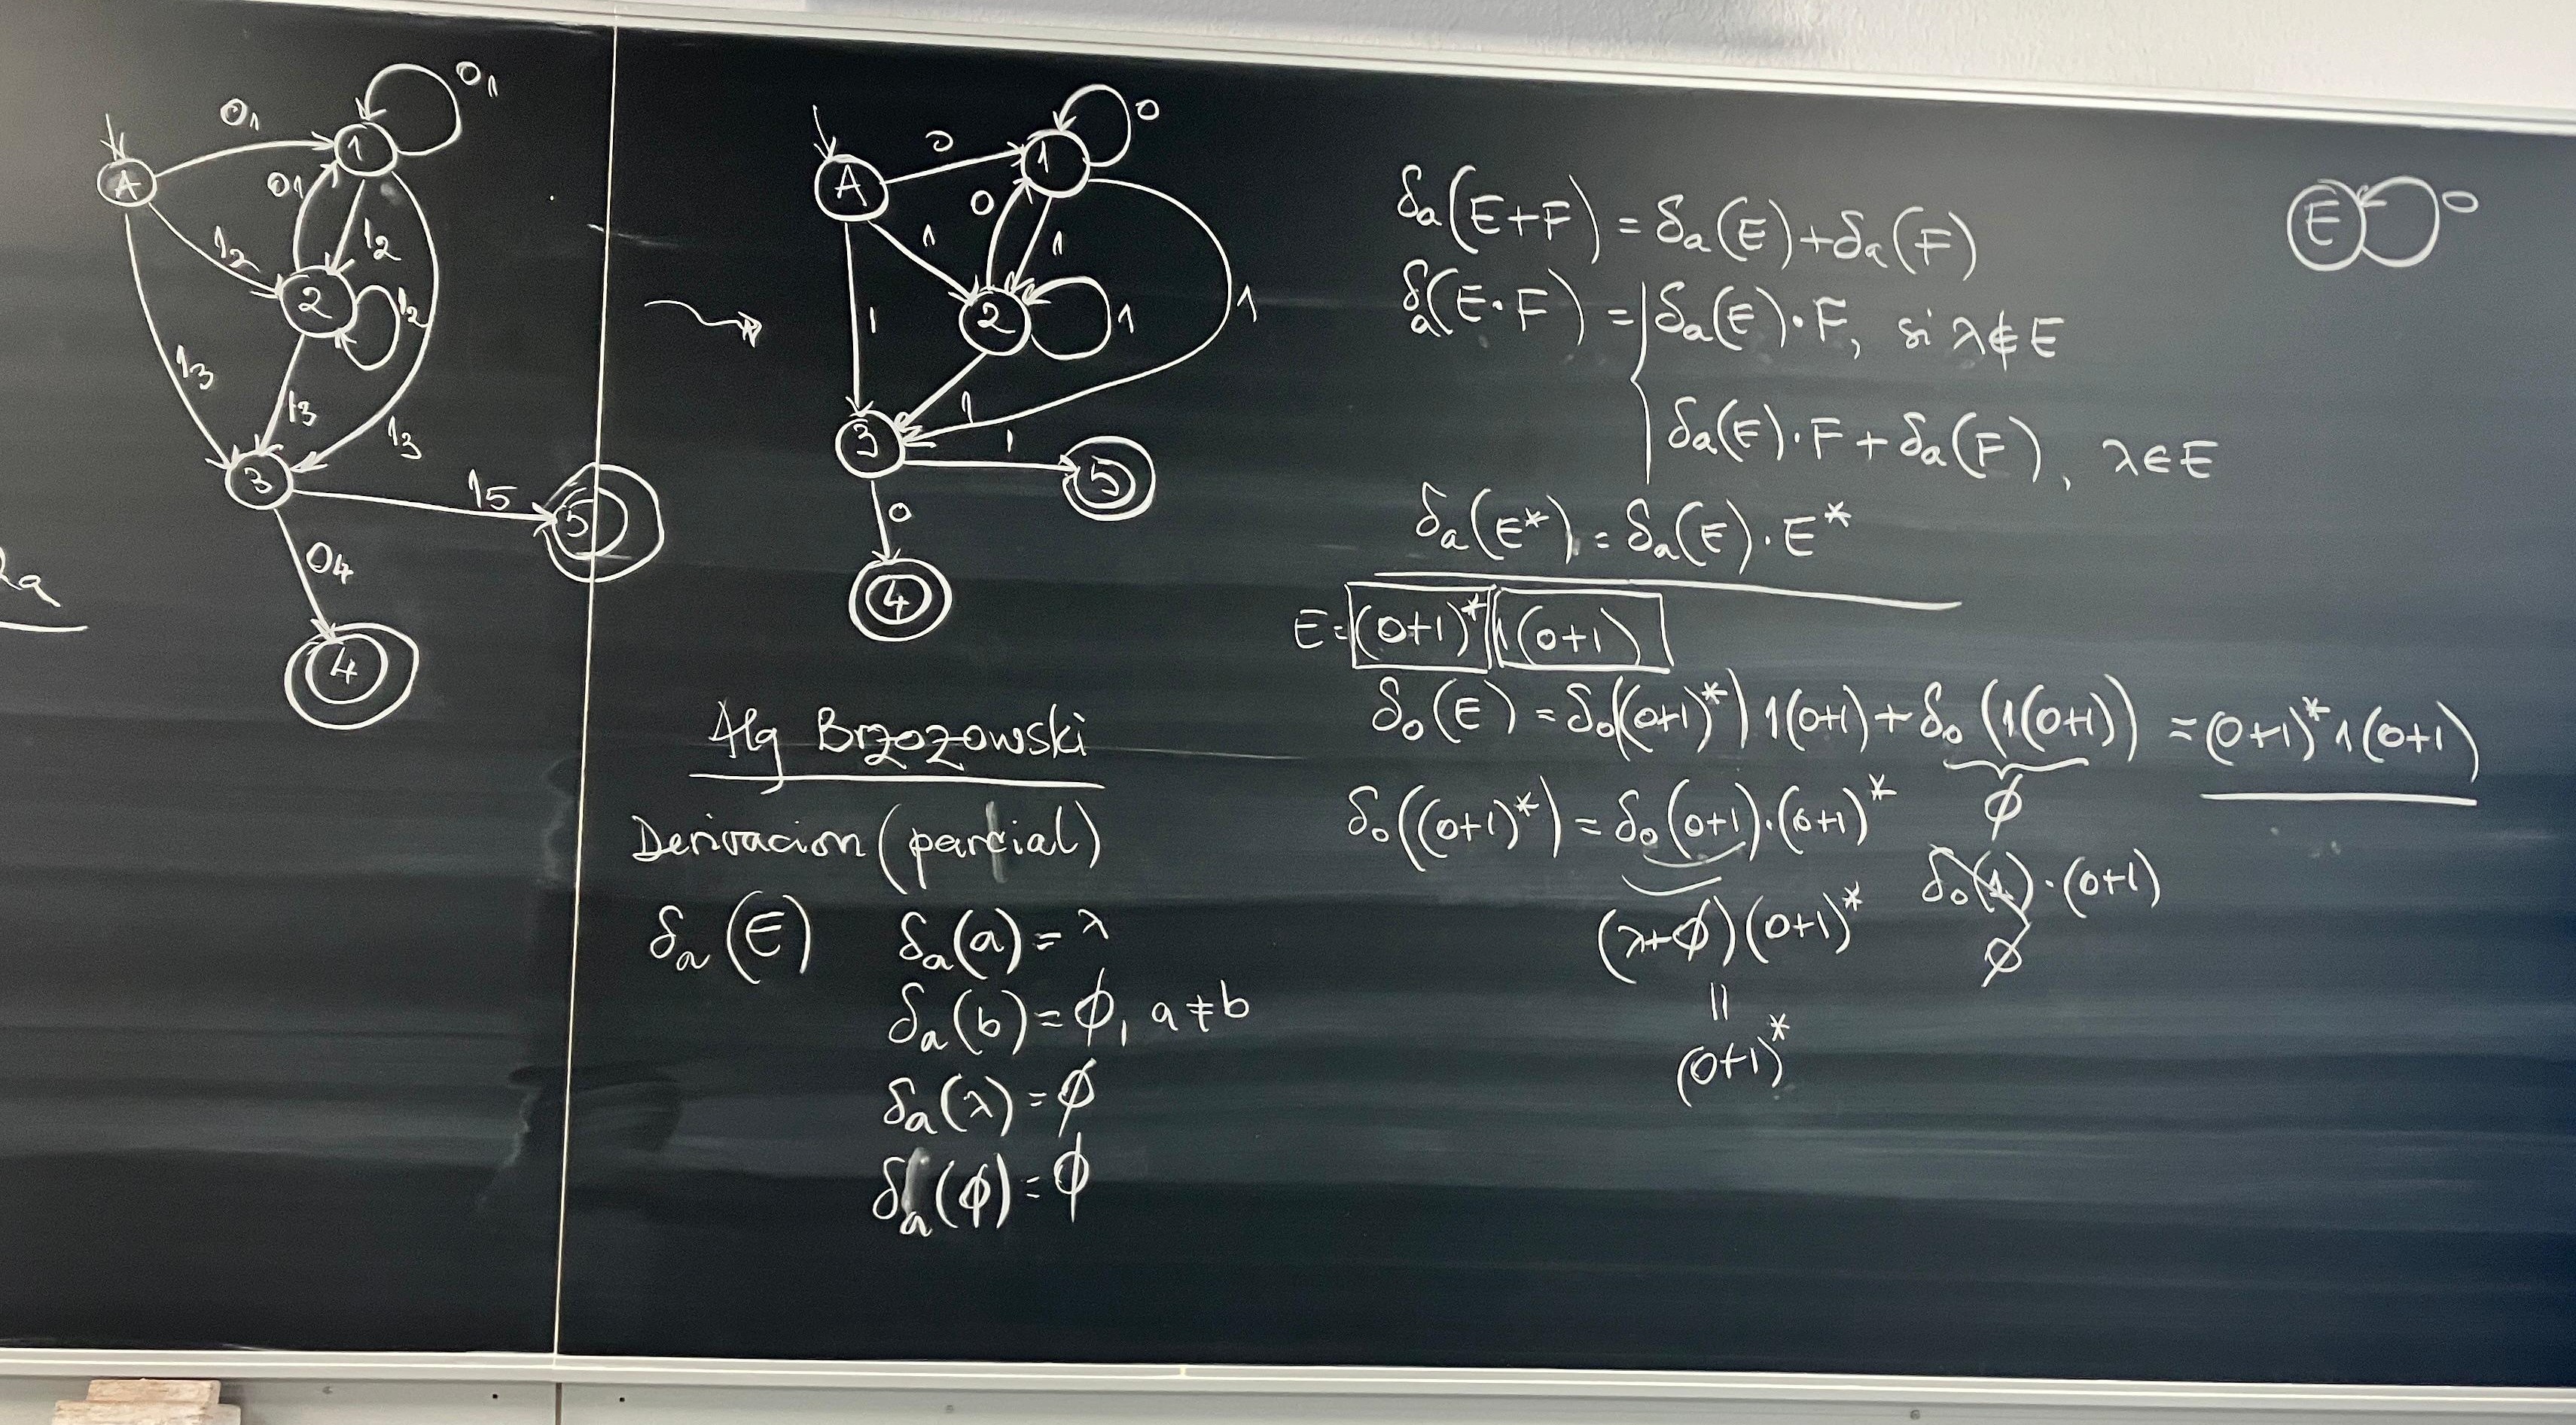 0₁
0₁
A
1
0₁
1₂
1₂
2
1₂
1₃
1₃
1₃
3
1₅
5
0₄
4
0
0
A
1
0
1
1
2
1
1
1
1
3
1
5
0
4
Alg Brzozowski
Derivacion (parcial)
δₐ(E) δₐ(a) = λ
δₐ(b) = ϕ, a ≠ b
δₐ(λ) = ϕ
δₐ(ϕ) = ϕ
δₐ(E+F) = δₐ(E) + δₐ(F)
δₐ(E·F) = δₐ(E)·F, si λ∉E
δₐ(E)·F + δₐ(F), λ∈E
δₐ(E*) = δₐ(E)·E*
E = (0+1)* 1(0+1)
δ₀(E) = δ₀((0+1)*) 1(0+1) + δ₀(1(0+1)) = (0+1)* 1(0+1)
ϕ
δ₀((0+1)*) = δ₀(0+1)·(0+1)*
δ₀(1)·(0+1)
ϕ
(λ+ϕ)(0+1)*
=
(0+1)*
E 0